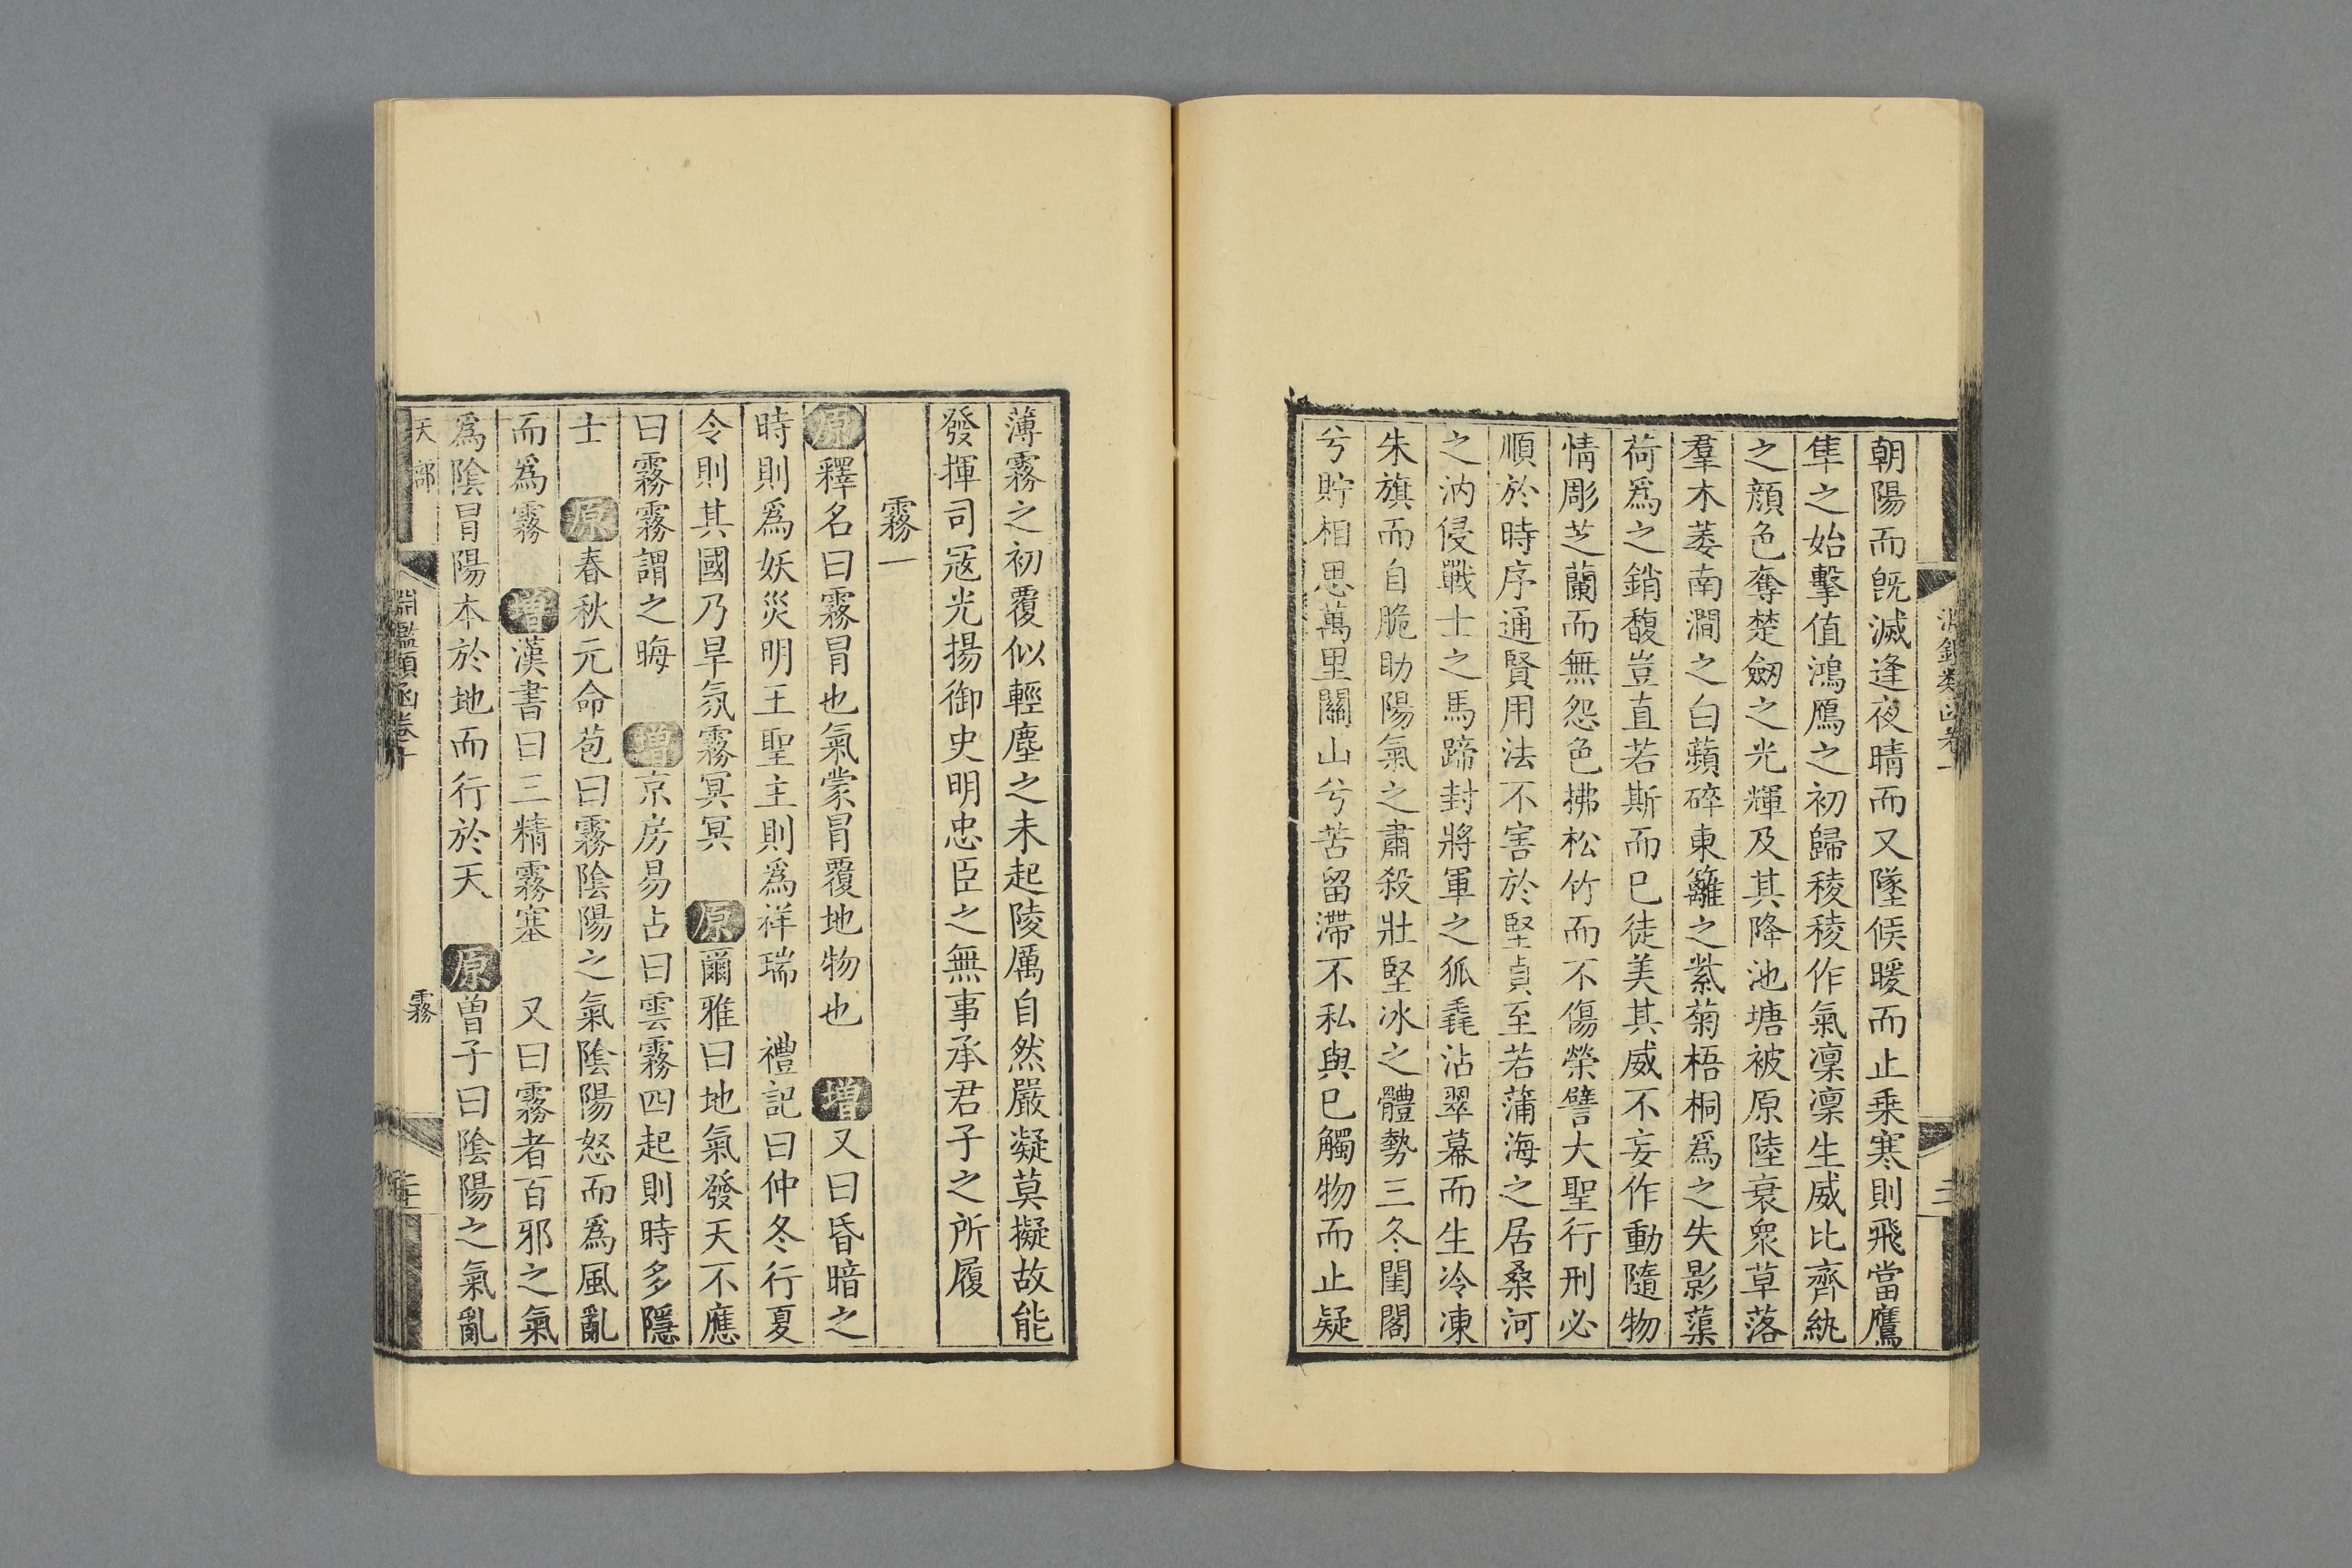 朝陽而旣滅逢夜晴而又墜候暖而止乗寒則飛當鷹
隼之始擊值鴻鴈之初歸稜稜作氣凜凜生威比齊紈
之顔色奪楚劒之光輝及其降池塘被原陸衰衆草落
羣木萎南澗之白蘋碎東籬之紫菊梧桐爲之失影蕖
荷爲之銷馥豈直若斯而已徒美其威不妄作動隨物
情彫芝蘭而無怨色拂松竹而不傷榮譬大聖行刑必
順於時序通賢用法不害於堅貞至若蒲海之居桑河
之汭侵戰士之馬蹄封將軍之狐毳沾翠幕而生冷凍
朱旗而自脆助陽氣之肅殺壯堅冰之體勢三冬閨閣
兮貯相思萬里關山兮苦留滯不私與已觸物而止疑
薄霧之初覆似輕塵之未起陵厲自然嚴凝莫擬故能
發揮司寇光揚御史明忠臣之無事承君子之所履
霧一
原釋名曰霧冒也氣蒙冒覆地物也 增又曰昏暗之
時則爲妖災明王聖主則爲祥瑞 禮記曰仲冬行夏
令則其國乃旱氛霧冥冥 原爾雅曰地氣發天不應
曰霧霧謂之晦 增京房易占曰雲霧四起則時多隱
士 原春秋元命苞曰霧陰陽之氣陰陽怒而爲風亂
而爲霧 增漢書曰三精霧塞 又曰霧者百邪之氣
爲陰冒陽本於地而行於天 原曾子曰陰陽之氣亂
天部
淵鑑類函卷十
霧